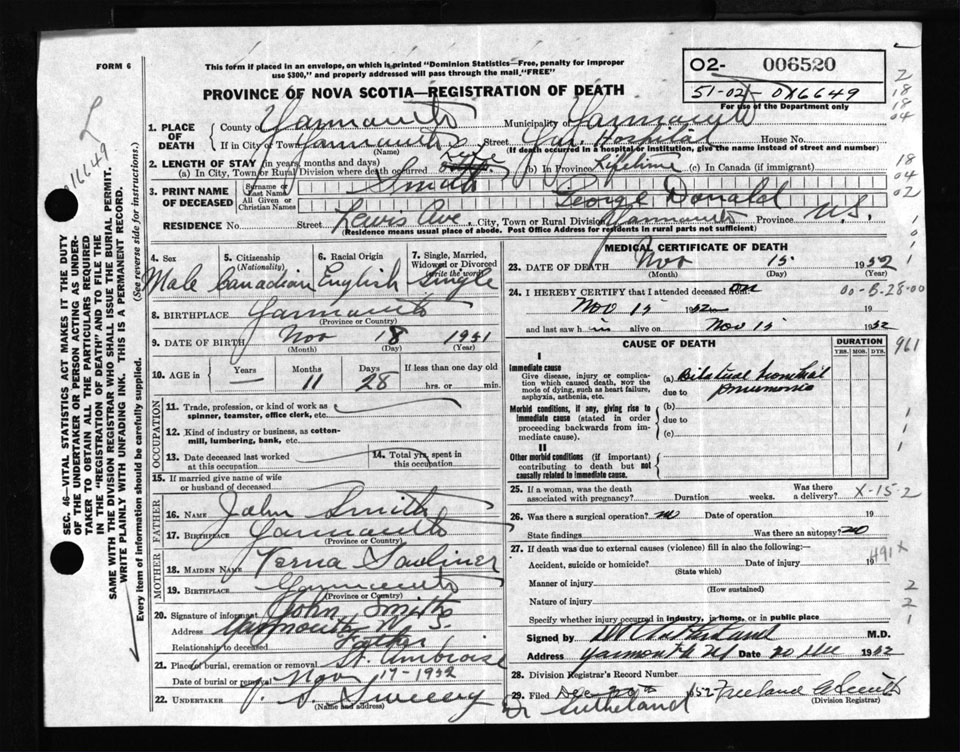 FORM 6
This form if placed in an envelope, on which is printed "Dominion Statistics—Free, penalty for improper
use $300," and properly addressed will pass through the mail "FREE"
PROVINCE OF NOVA SCOTIA—REGISTRATION OF DEATH
02- 006520
51-02- 016649
For use of the Department only
016649
SEC. 46—VITAL STATISTICS ACT MAKES IT THE DUTY
OF THE UNDERTAKER OR PERSON ACTING AS UNDER-
TAKER TO OBTAIN ALL THE PARTICULARS REQUIRED
IN THE "REGISTRATION OF DEATH" AND TO FILE THE
SAME WITH THE DIVISION REGISTRAR WHO SHALL ISSUE THE BURIAL PERMIT.
WRITE PLAINLY WITH UNFADING INK. THIS IS A PERMANENT RECORD.
Every item of information should be carefully supplied. (See reverse side for instructions.)
1. PLACE OF DEATH County of Yarmouth Municipality of Yarmouth
If in City or Town Yarmouth Street Yar. Hospital House No.
(Name) (If death occurred in a hospital or institution, give the name instead of street and number)
2. LENGTH OF STAY (in years, months and days)
(a) In City, Town or Rural Division where death occurred (b) In Province Lifetime (c) In Canada (if immigrant)
3. PRINT NAME OF DECEASED
Surname or Last Name Smith
All Given or Christian Names George Donald
RESIDENCE No. Street Lewis Ave. City, Town or Rural Division Yarmouth Province N.S.
(Residence means usual place of abode. Post Office Address for residents in rural parts not sufficient)
4. Sex 5. Citizenship (Nationality) 6. Racial Origin 7. Single, Married, Widowed or Divorced (write the word)
Male Canadian English Single
8. BIRTHPLACE Yarmouth
(Province or Country)
9. DATE OF BIRTH Nov 18 1951
(Month) (Day) (Year)
10. AGE in Years — Months 11 Days 28 If less than one day old
hrs. or min.
OCCUPATION
11. Trade, profession, or kind of work as
spinner, teamster, office clerk, etc.
12. Kind of industry or business, as cotton-
mill, lumbering, bank, etc.
13. Date deceased last worked at this occupation 14. Total yrs. spent in this occupation
15. If married give name of wife
or husband of deceased
FATHER
16. NAME John Smith
17. BIRTHPLACE Yarmouth
(Province or Country)
MOTHER
18. MAIDEN NAME Verna
19. BIRTHPLACE Yarmouth
(Province or Country)
20. Signature of informant John Smith
Address Yarmouth N.S.
Relationship to deceased Father
21. Place of burial, cremation or removal St. Ambroise
Date of burial or removal Nov 17-1952
22. UNDERTAKER Sweeny
(Name and Address)
MEDICAL CERTIFICATE OF DEATH
23. DATE OF DEATH Nov 15 1952
(Month) (Day) (Year)
24. I HEREBY CERTIFY that I attended deceased from: on
Nov 15 1952 19
and last saw h im alive on Nov 15 1952
CAUSE OF DEATH DURATION
YRS. MOS. DYS.
I
Immediate cause
Give disease, injury or complica-
tion which caused death, NOT the
mode of dying, such as heart failure,
asphyxia, asthenia, etc.
(a) Bilateral bronchial
due to pneumonia
Morbid conditions, if any, giving rise to
immediate cause (stated in order
proceeding backwards from im-
mediate cause).
(b)
due to
(c)
II
Other morbid conditions (if important)
contributing to death but not
causally related to immediate cause.
25. If a woman, was the death
associated with pregnancy? Duration weeks. Was there a delivery?
26. Was there a surgical operation? no Date of operation 19
State findings Was there an autopsy? no
27. If death was due to external causes (violence) fill in also the following:—
Accident, suicide or homicide? Date of injury 19
(State which)
Manner of injury
(How sustained)
Nature of injury
Specify whether injury occurred in industry, in home, or in public place
Signed by M.D.
Address Yarmouth NS Date 20 Dec 1952
28. Division Registrar's Record Number
29. Filed Dec 1952 Freeland Smith
(Division Registrar)
Dr Sutherland
2
18
18
04
18
04
02
00-B-28-00
961
X-15-2
491X
2
2
1